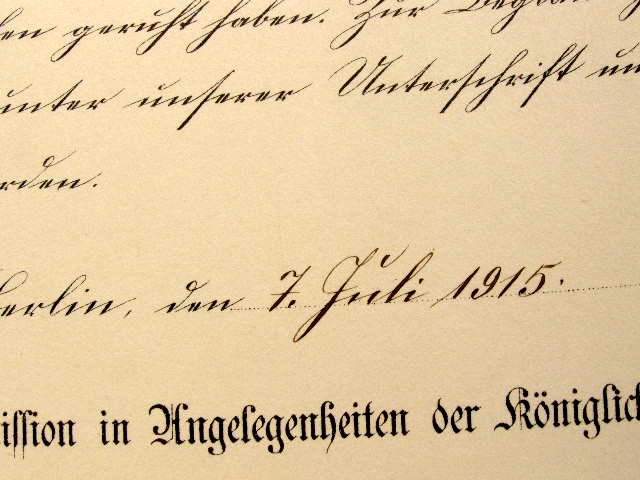 geruht haben. Zur
unter unserer Unterschrift
rden.
erlin, den 7. Juli 1915.
ission in Angelegenheiten der Königlich